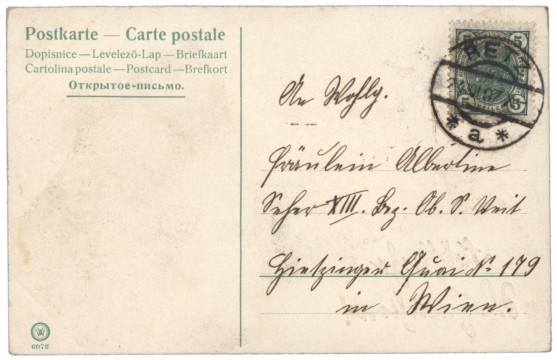 Postkarte — Carte postale
Dopisnice — Levelező-Lap — Briefkaart
Cartolina postale — Postcard — Brefkort
Открытое-письмо.
5 5
RETZ
07
* a *
An Wohlg.
Fräulein Albertine
Seher XIII. Bez. Ob. S. Veit
Hietzinger Quai No 179
in Wien.
6078